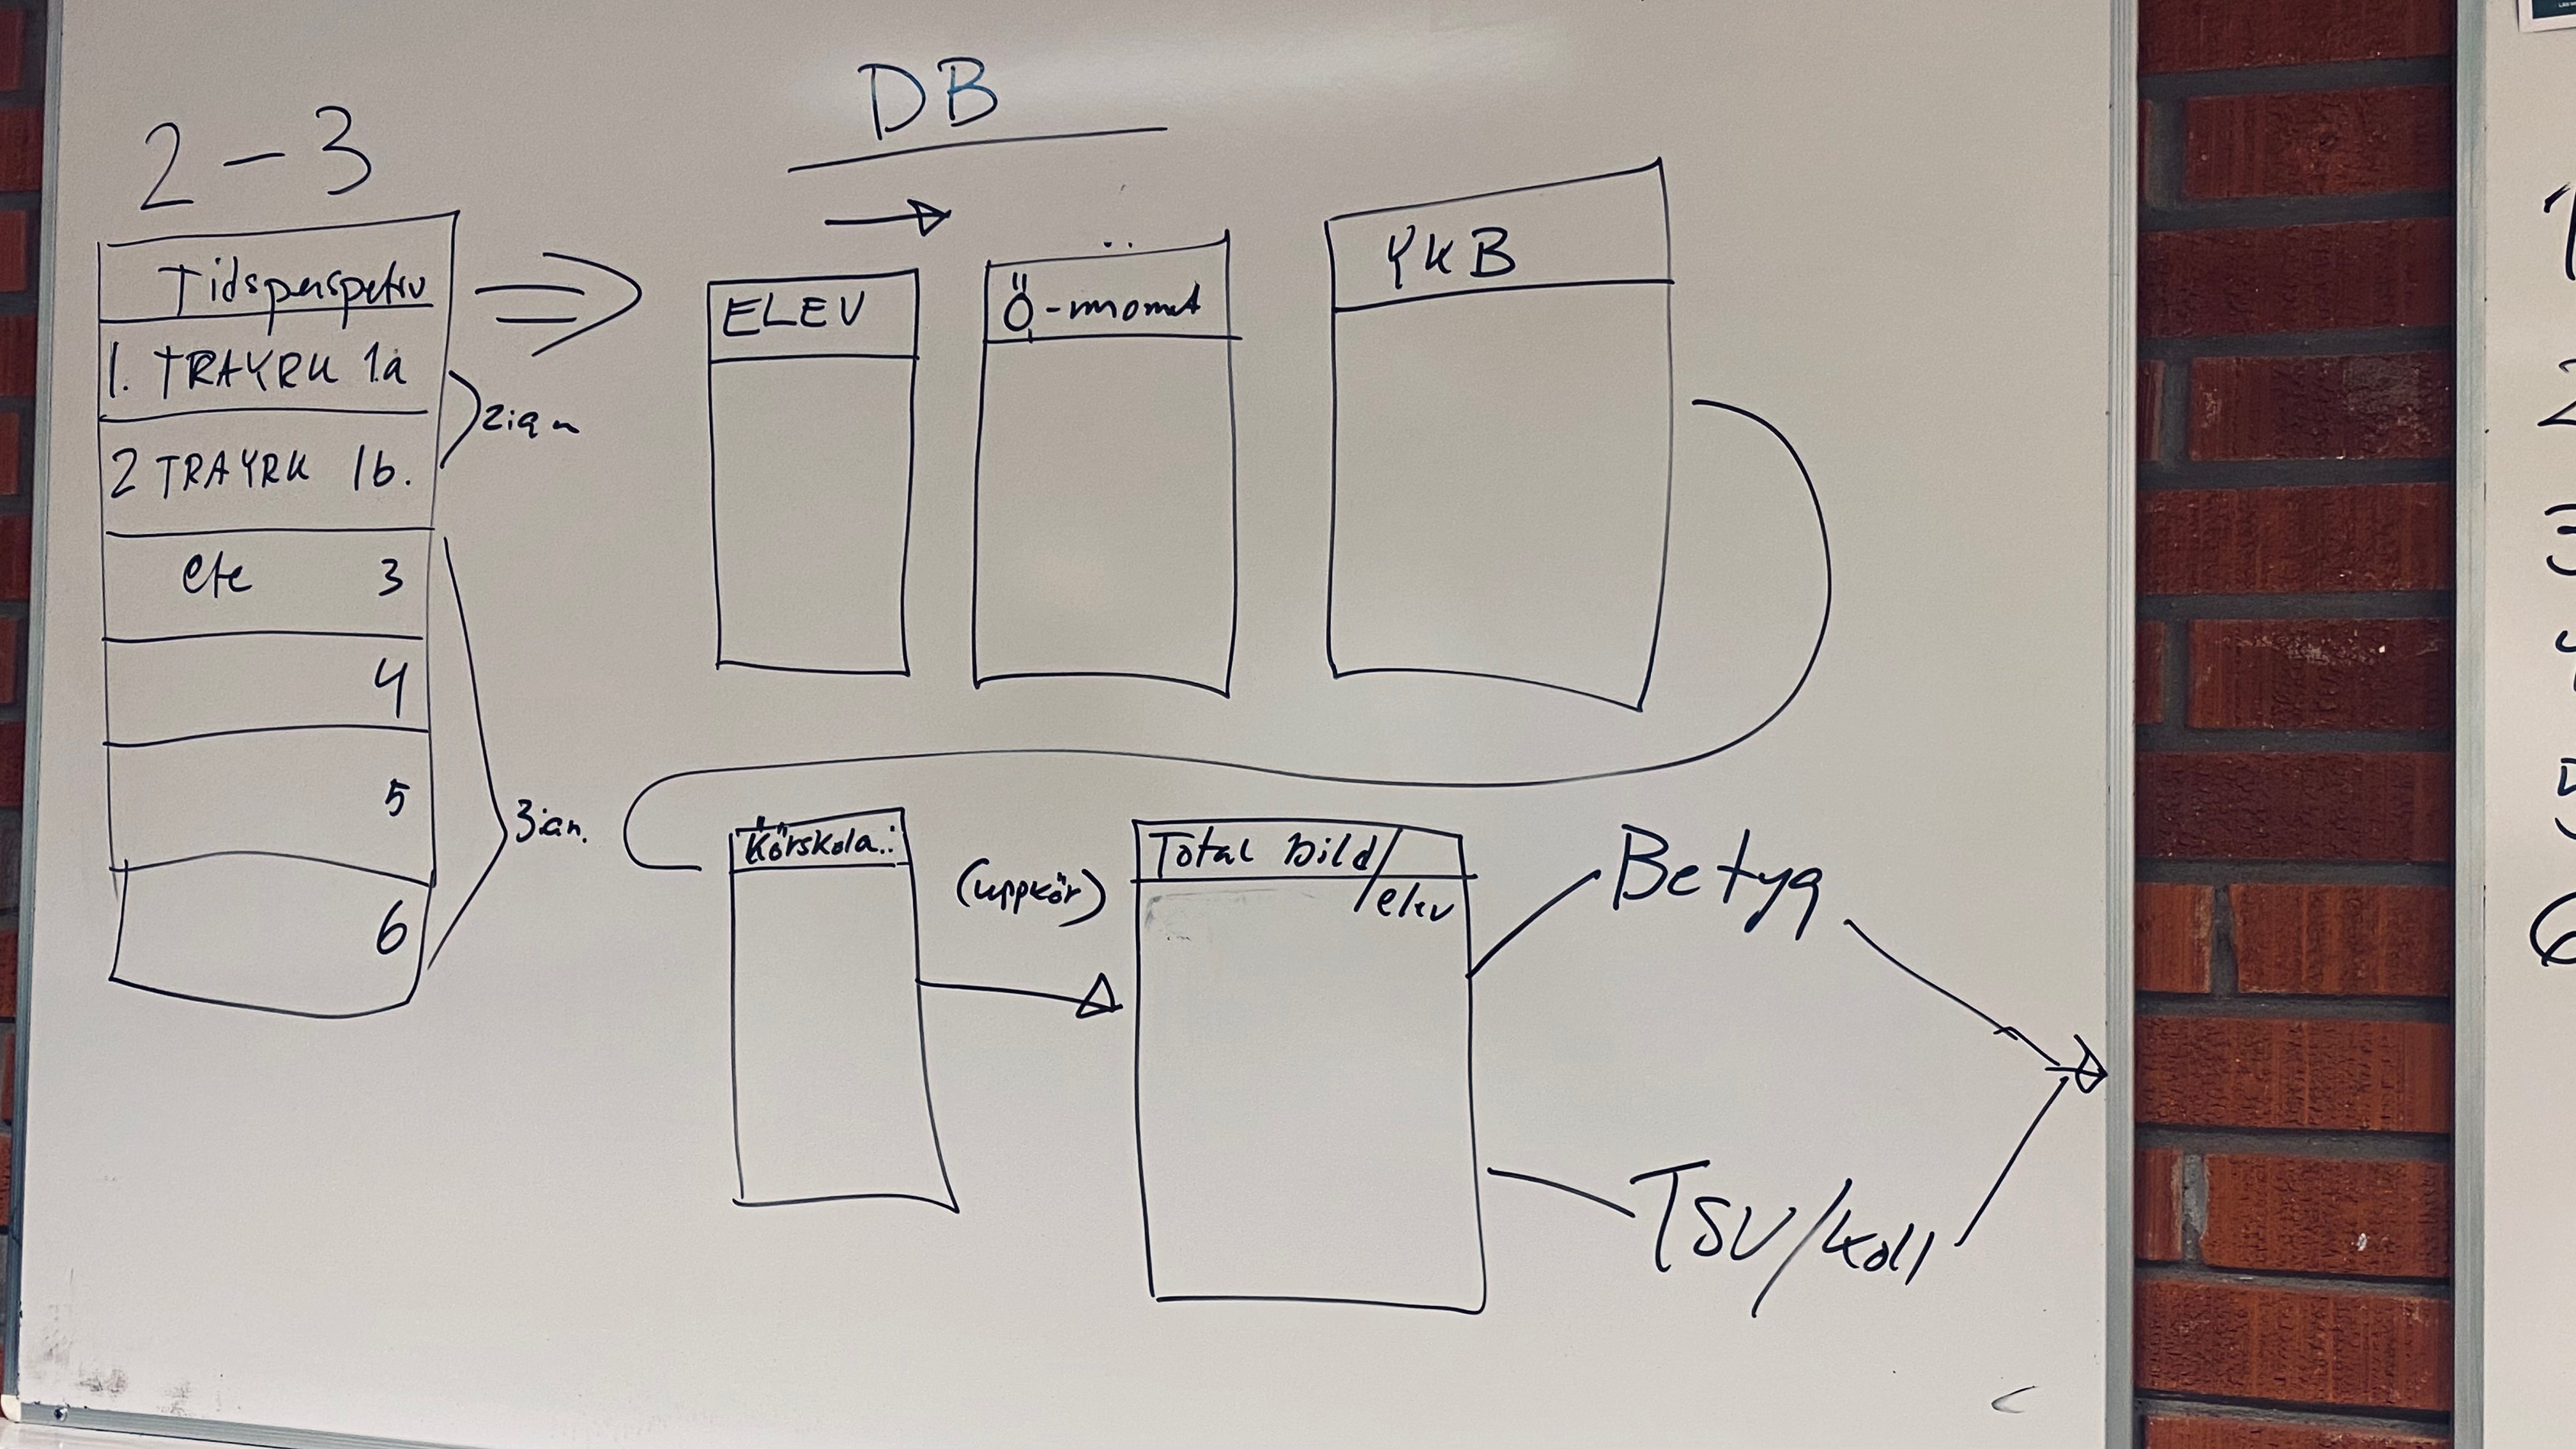 DB
2-3
Tidsperspetiv
1. TRAYRK 1a
2 TRAYRK 1b.
etc 3
4
5
6
2:an
3:an.
ELEV
Ö-moment
YKB
Körskola..:
(uppkör)
Total bild/
elev
Betyg
TSV/koll
1
2
3
4
5
6